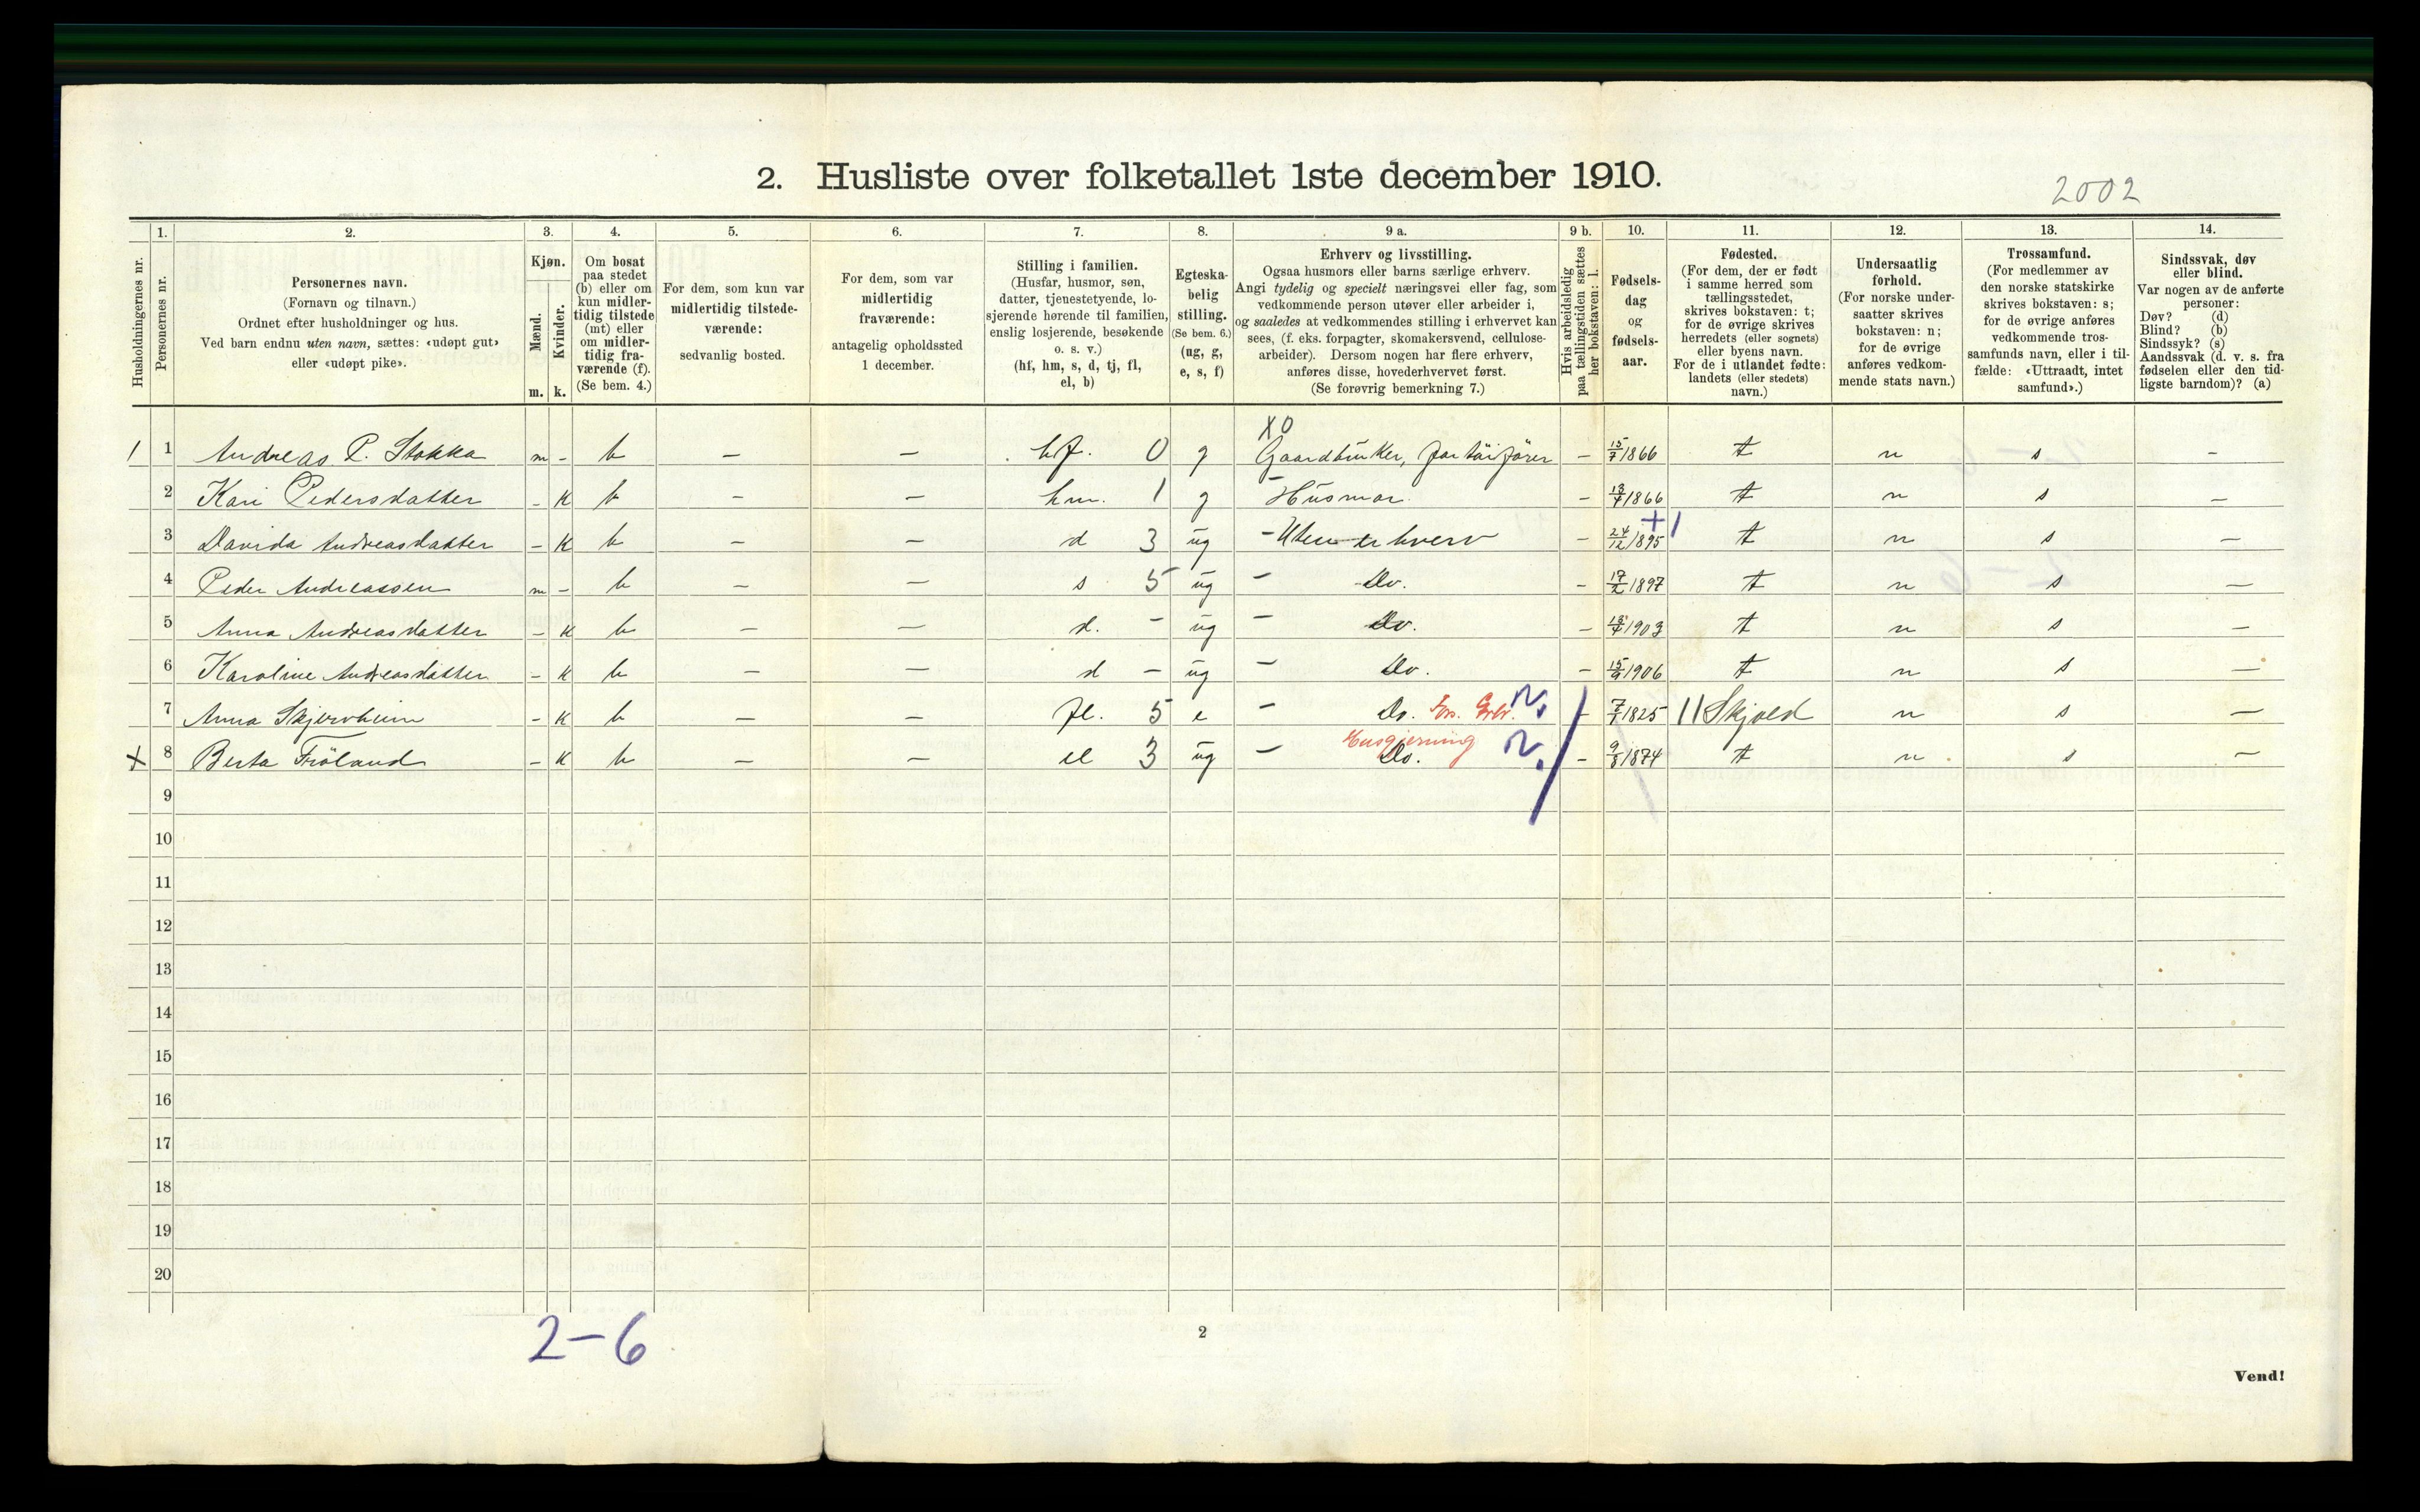 2. Husliste over folketallet 1ste december 1910.
2002
1. 2. 3. 4. 5. 6. 7. 8. 9 a. 9 b. 10. 11. 12. 13. 14.
Husholdningernes nr.
Personernes nr.
Personernes navn.
(Fornavn og tilnavn.)
Ordnet efter husholdninger og hus.
Ved barn endnu uten navn, sættes: «udøpt gut»
eller «udøpt pike».
Kjøn.
Mænd.
Kvinder.
m. k.
Om bosat
paa stedet
(b) eller om
kun midler-
tidig tilstede
(mt) eller
om midler-
tidig fra-
værende (f).
(Se bem. 4.)
For dem, som kun var
midlertidig tilstede-
værende:
sedvanlig bosted.
For dem, som var
midlertidig
fraværende:
antagelig opholdssted
1 december.
Stilling i familien.
(Husfar, husmor, søn,
datter, tjenestetyende, lo-
sjerende hørende til familien,
enslig losjerende, besøkende
o. s. v.)
(hf, hm, s, d, tj, fl,
el, b)
Egteska-
belig
stilling.
(Se bem. 6.)
(ug, g,
e, s, f)
Erhverv og livsstilling.
Ogsaa husmors eller barns særlige erhverv.
Angi tydelig og specielt næringsvei eller fag, som
vedkommende person utøver eller arbeider i,
og saaledes at vedkommendes stilling i erhvervet kan
sees, (f. eks. forpagter, skomakersvend, cellulose-
arbeider). Dersom nogen har flere erhverv,
anføres disse, hovederhvervet først.
(Se forøvrig bemerkning 7.)
Hvis arbeidsledig
paa tællingstiden sættes
her bokstaven: l.
Fødsels-
dag
og
fødsels-
aar.
Fødested.
(For dem, der er født
i samme herred som
tællingsstedet,
skrives bokstaven: t;
for de øvrige skrives
herredets (eller sognets)
eller byens navn.
For de i utlandet fødte:
landets (eller stedets)
navn.)
Undersaatlig
forhold.
(For norske under-
saatter skrives
bokstaven: n;
for de øvrige
anføres vedkom-
mende stats navn.)
Trossamfund.
(For medlemmer av
den norske statskirke
skrives bokstaven: s;
for de øvrige anføres
vedkommende tros-
samfunds navn, eller i til-
fælde: «Uttraadt, intet
samfund».)
Sindssvak, døv
eller blind.
Var nogen av de anførte
personer:
Døv? (d)
Blind? (b)
Sindssyk? (s)
Aandssvak (d. v. s. fra
fødselen eller den tid-
ligste barndom)? (a)
X0
1 1 Andreas P. Stokka m - b - - hf. 0 g Gaardbruker, fartöiförer - 15/7 1866 t n s -
2 Kari Pedersdatter - k b - - hm. 1 g Husmor - 13/7 1866 t n s -
+1
3 Davida Andreasdatter - k b - - d 3 ug - Uten erhverv - 24/12 1895 t n s -
4 Peder Andreassen m - b - - s 5 ug - Do. - 17/2 1897 t n s -
5 Anna Andreasdatter - k b - - d. - ug - Do. - 13/4 1903 t n s -
6 Karoline Andreasdatter - k b - - d - ug - Do. - 15/9 1906 t n s -
7 Anna Skjervheim - k b - - fl. 5 e - Do. - 7/1 1825 11 Skjold n s -
Husgjerning
X 8 Berta Fröland - k b - - el 3 ug - Do. - 9/8 1874 t n s -
9
10
11
12
13
14
15
16
17
18
19
20
2-6
2
Vend!